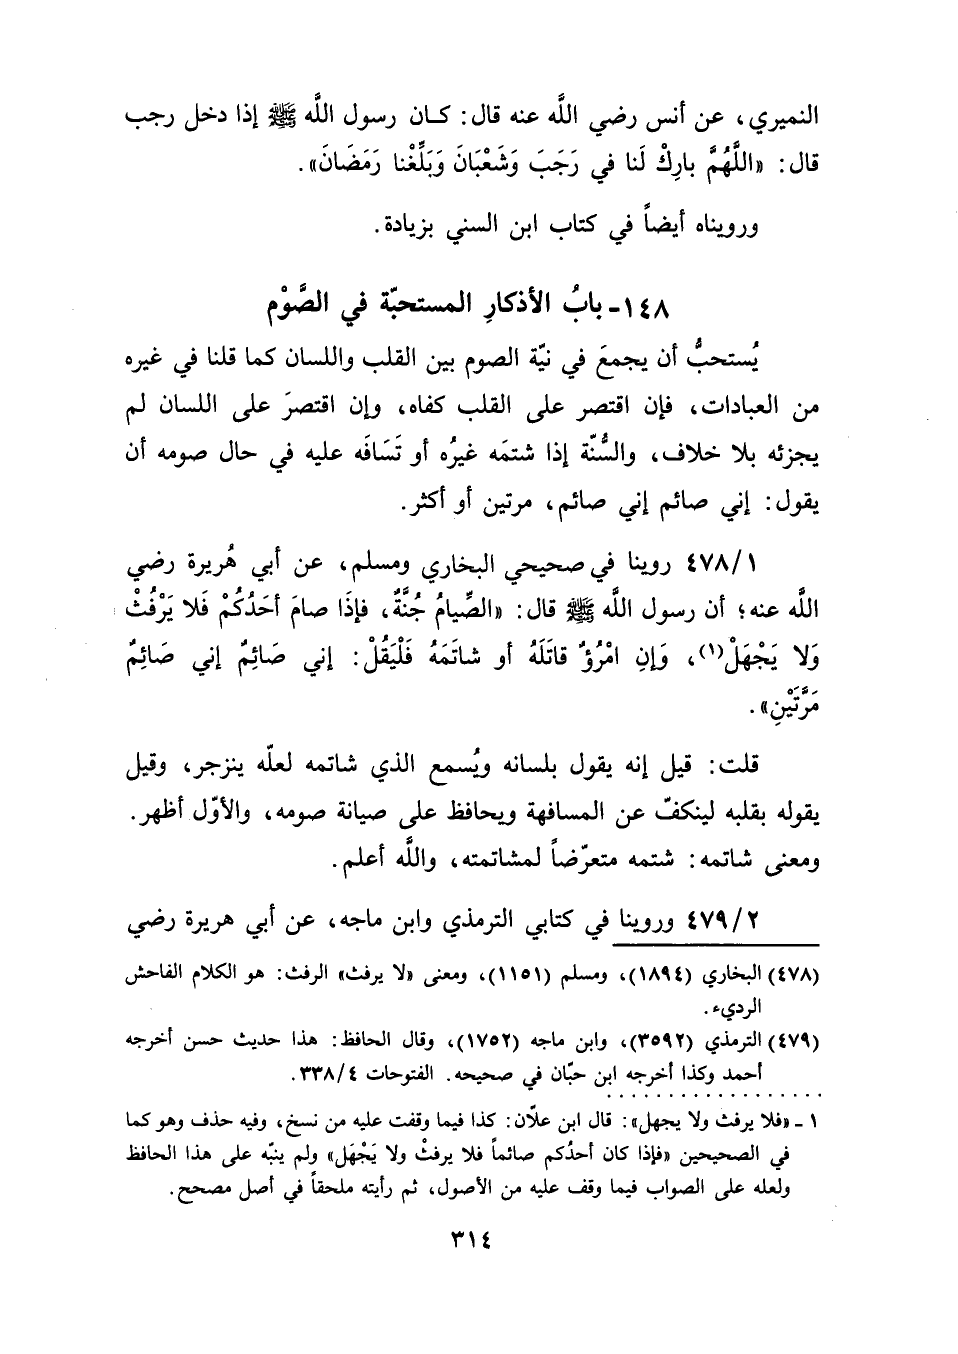 النميري، عن أنس رضي اللَّه عنه قال: كـان رسول اللَّه ﷺ إذا دخل رجب
قال: «اللَّهُمَّ بارِكْ لَنا في رَجَبَ وَشَعْبَانَ وَبَلِّغْنا رَمَضَانَ».
ورويناه أيضاً في كتاب ابن السني بزيادة.
١٤٨ـ بابُ الأذكارِ المستحبّة في الصَّوْم
يُستحبُّ أن يجمعَ في نيّة الصوم بين القلب واللسان كما قلنا في غيره
من العبادات، فإن اقتصر على القلب كفاه، وإن اقتصرَ على اللسان لم
يجزئه بلا خلاف، والسُّنّة إذا شتمَه غيرُه أو تَسَافَه عليه في حال صومه أن
يقول: إني صائم إني صائم، مرتين أو أكثر.
٤٧٨/١ روينا في صحيحي البخاري ومسلم، عن أبي هُريرة رضي
اللَّه عنه؛ أن رسول اللَّه ﷺ قال: «الصِّيامُ جُنَّةٌ، فإذَا صامَ أحَدُكُمْ فَلا يَرْفُثْ
وَلا يَجْهَلْ(١)، وَإنِ امْرُؤٌ قاتَلَهُ أو شاتَمَهُ فَلْيَقُلْ: إني صَائِمٌ إني صَائِمٌ
مَرَّتَيْنِ».
قلت: قيل إنه يقول بلسانه ويُسمع الذي شاتمه لعلّه ينزجر، وقيل
يقوله بقلبه لينكفّ عن المسافهة ويحافظ على صيانة صومه، والأوّل أظهر.
ومعنى شاتمه: شتمه متعرّضاً لمشاتمته، واللَّه أعلم.
٤٧٩/٢ وروينا في كتابي الترمذي وابن ماجه، عن أبي هريرة رضي
(٤٧٨) البخاري (١٨٩٤)، ومسلم (١١٥١)، ومعنى «لا يرفث» الرفث: هو الكلام الفاحش
الرديء.
(٤٧٩) الترمذي (٣٥٩٢)، وابن ماجه (١٧٥٢)، وقال الحافظ: هذا حديث حسن أخرجه
أحمد وكذا أخرجه ابن حبّان في صحيحه. الفتوحات ٣٣٨/٤.
١ ـ «فلا يرفث ولا يجهل»: قال ابن علّان: كذا فيما وقفت عليه من نسخ، وفيه حذف وهو كما
في الصحيحين «فإذا كان أحدُكم صائماً فلا يرفثْ ولا يَجْهَل» ولم ينبّه على هذا الحافظ
ولعله على الصواب فيما وقف عليه من الأصول، ثم رأيته ملحقاً في أصل مصحح.
٣١٤